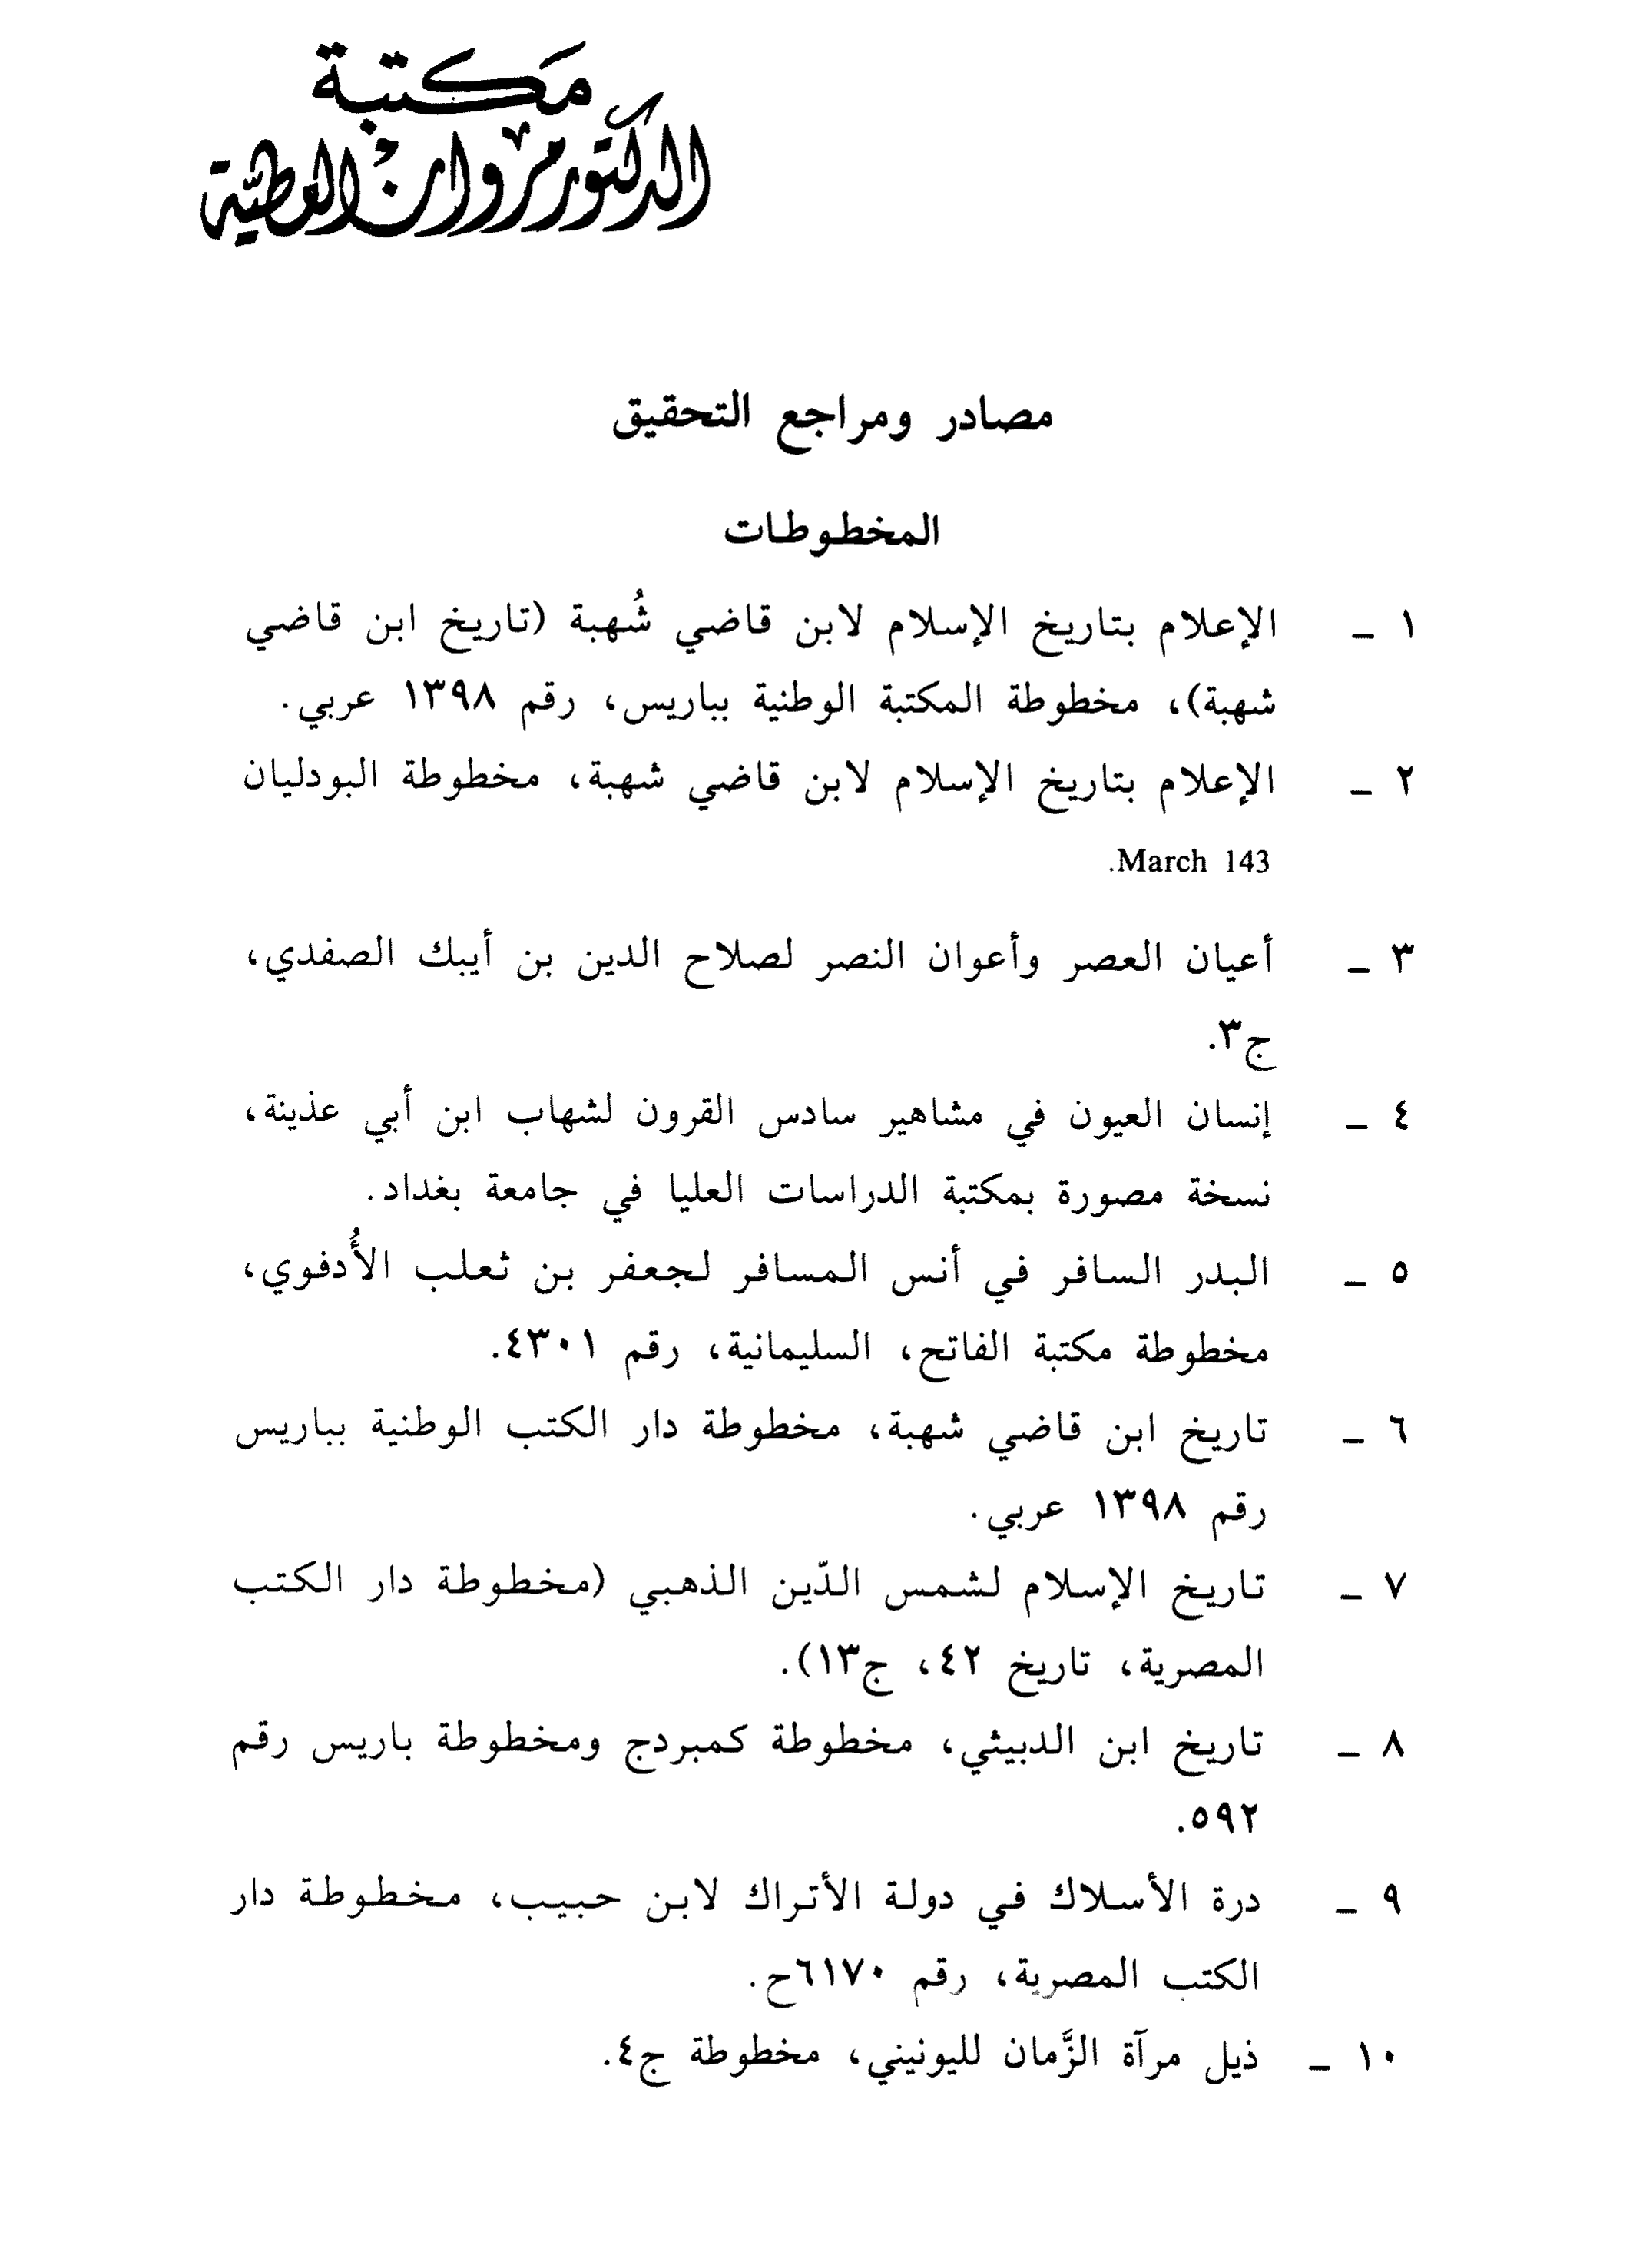 مكتبة
الدكتور مروان العطية
مصادر ومراجع التحقيق
المخطوطات
١ ـ الإعلام بتاريخ الإسلام لابن قاضي شُهبة (تاريخ ابن قاضي
شهبة)، مخطوطة المكتبة الوطنية بباريس، رقم ١٣٩٨ عربي.
٢ ـ الإعلام بتاريخ الإسلام لابن قاضي شهبة، مخطوطة البودليان
March 143.
٣ ـ أعيان العصر وأعوان النصر لصلاح الدين بن أيبك الصفدي،
ج٣.
٤ ـ إنسان العيون في مشاهير سادس القرون لشهاب ابن أبي عذينة،
نسخة مصورة بمكتبة الدراسات العليا في جامعة بغداد.
٥ ـ البدر السافر في أنس المسافر لجعفر بن ثعلب الأُدفوي،
مخطوطة مكتبة الفاتح، السليمانية، رقم ٤٣٠١.
٦ ـ تاريخ ابن قاضي شهبة، مخطوطة دار الكتب الوطنية بباريس
رقم ١٣٩٨ عربي.
٧ ـ تاريخ الإسلام لشمس الدّين الذهبي (مخطوطة دار الكتب
المصرية، تاريخ ٤٢، ج١٣).
٨ ـ تاريخ ابن الدبيثي، مخطوطة كمبردج ومخطوطة باريس رقم
٥٩٢.
٩ ـ درة الأسلاك في دولة الأتراك لابن حبيب، مخطوطة دار
الكتب المصرية، رقم ٦١٧٠ح.
١٠ ـ ذيل مرآة الزَّمان لليونيني، مخطوطة ج٤.